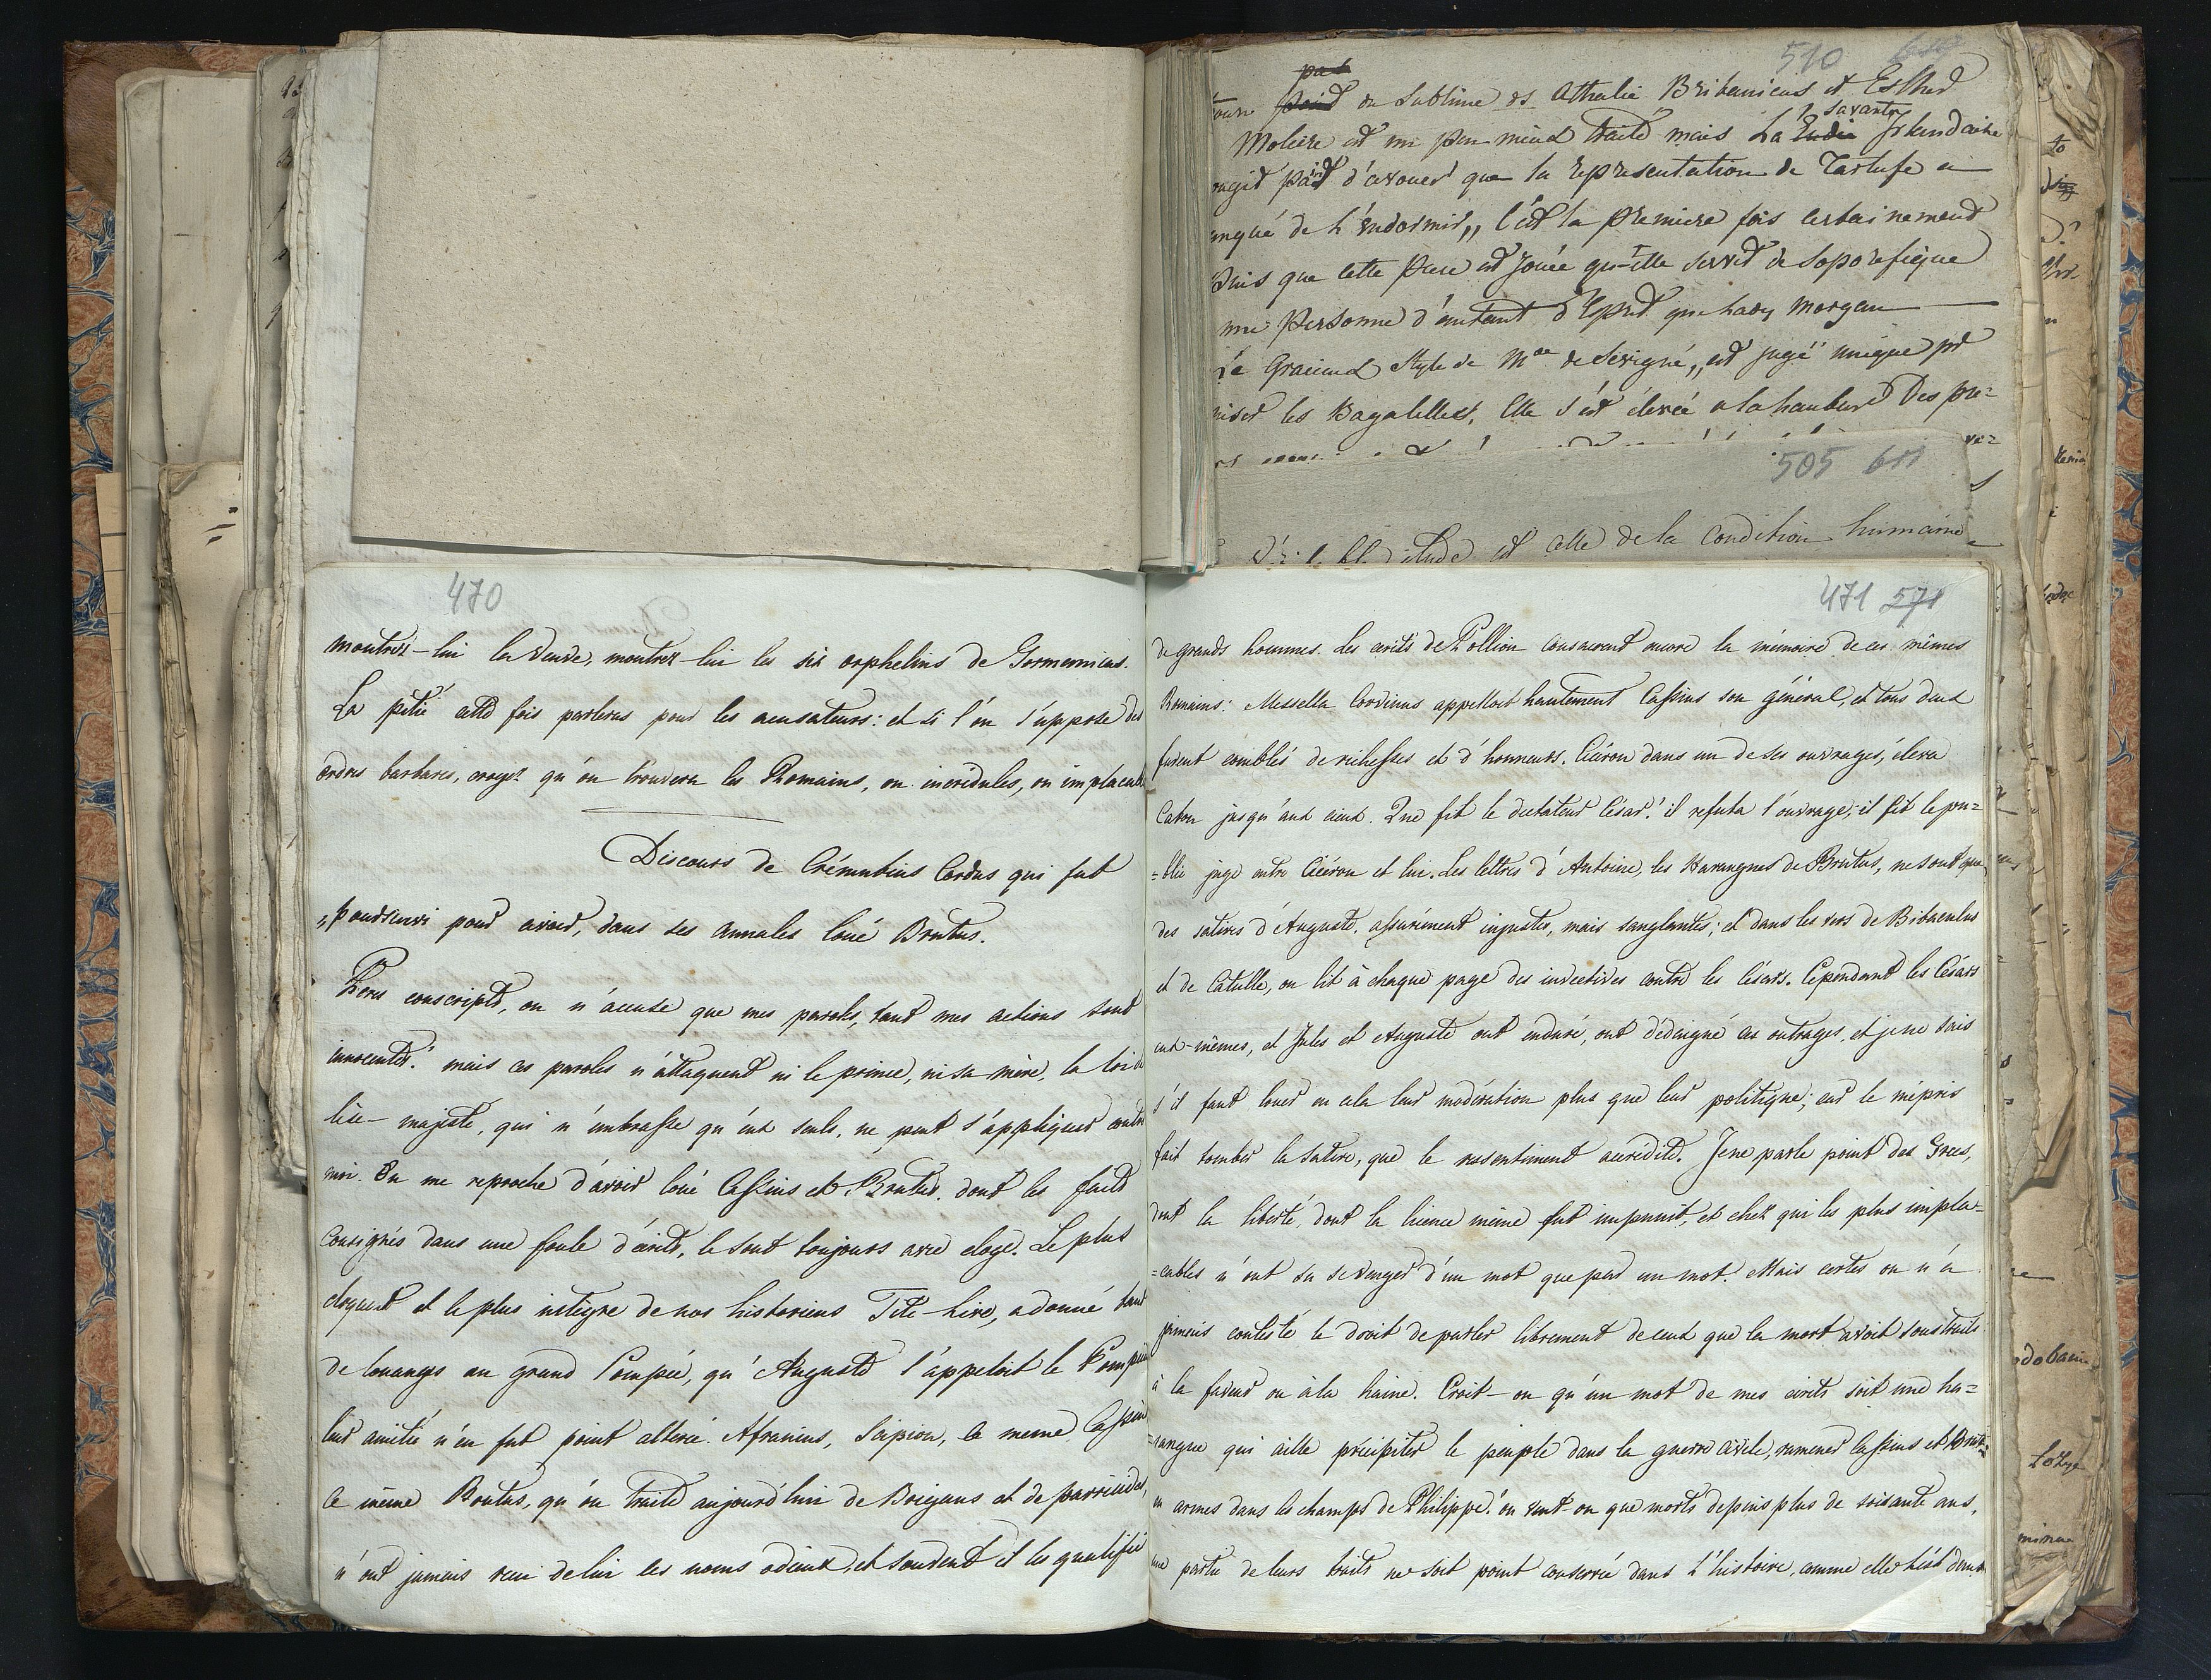 470
montrez-lui la Veuve, montrez-lui les six orphelins de Germanicus.
La pitié cette fois parleras pour les acusateurs: et si l'on s'uppose des
ordres barbares, croyez qu'on trouvera les Rhomains, ou incrédules, ou implacabl
Discours de Crémutius Cordus qui fut
poursuivi pour avoir, dans ses annales loué Brutus.
Peres conscripts, on n'accuse que mes paroles, tant mes actions sont
innocentes! mais ces paroles n'attaquent ni le prince, ni sa mère, la loi de
léze-majesté, qui n'embrasse qu'eux seuls, ne peut s'appliquer contre
moi. On me reproche d'avoir loué Cassius et Brutus, dont les faits
consignés dans une foule d'écrits, le sont toujours avec eloge. Le plus
eloquent et le plus intègre de nos historiens Tite-Live, a donné tant
de louanges au grand Pompée, qu'Auguste l'appeloit le Pompéien
leur amitié n'en fut point altérée. Afranius, Scipion, ce meme Cassius
ce même Brutus, qu'on traite aujourd'hui de Brigans et de parricides,
n'ont jamais recu de lui ces noms odieux, et souvent il les qualifie
510
pas
du Sublime ds Athalie Britanicus et Esther
savante
Moliere est un peu mieux traité mais La Irlandaise
d'avouer que la representation de Tartufe a
de l'endormir,, C'est la premiere fois certainement
que cette piece est jouée qu'elle servit de soporefique
une Personne d'autant d'Esprit que Lady Morgan
Le Gracieux Style de Mde de Sevigné,, est jugé unique pr
les Bagatelles, Elle s'est elevée a la hauteur Des pre=
505 611
est celle de la Condition humaine
471 571
de grands hommes. Les écrits de Pollion consacrent encore la mémoire de ces mêmes
Romains: Messella Corvinus appelloit hautement Cassius son général, et tous deux
furent comblés de richesses et d'honneurs. Cicéron dans un de ses ouvrages, éleva
Caton jusqu'aux cieux. Que fit le dictateur César! il refuta l'ouvrage; il fit le pu=
=blic juge entre Cicéron et lui. Les lettres d'Antoine, les Harangues de Brutus, ne sont que
des satires d'Auguste, assurément injustes, mais sanglantes; et dans les vers de Bibaculus
et de Catulle, on lit à chaque page des invectives contre les Césars. Cependant les Césars
eux-mêmes, et Jules et Auguste ont enduré, ont dédaigné ces outrages, et je ne sais
s'il faut louer en cela leur modération plus que leur politique; car le mépris
fait tomber la satire, que le resentiment accrédite. Je ne parle point des Grecs,
dont la liberté, dont la licence même fut impunit, et chez qui les plus impla=
=cables n'ont su se venger d'un mot que par un mot. Mais certes on n'a
jamais contesté le droit de parler librement de ceux que la mort avoit soustraits
à la faveur ou à la haine. Croit-on qu'un mot de mes écrits soit une ha=
=rangue qui aille précipiter le peuple dans la guerre civile, ramener Cassius et Brutus
en armes dans les champs de Philippe! ou veut-on que morts depuis plus de soixante ans,
une partie de leurs traits ne soit point conservée dans l'histoire, comme elle l'est dans